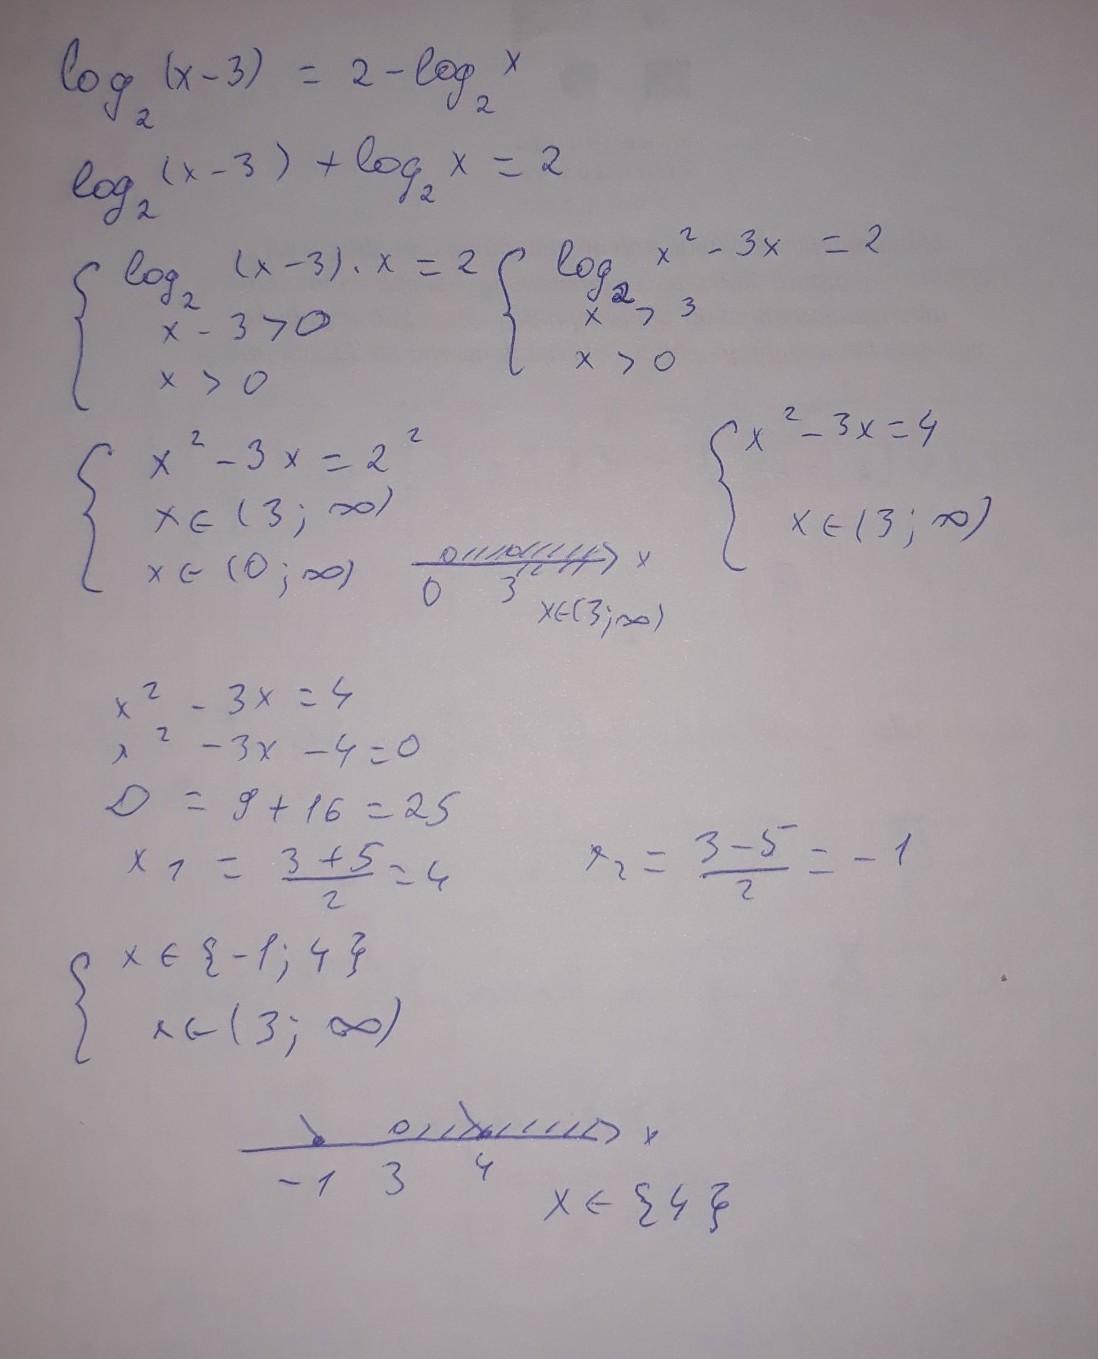 log₂ (x-3) = 2 - log₂ x
log₂ (x-3) + log₂ x = 2
{ log₂ (x-3)·x = 2 { log₂ x² - 3x = 2
x - 3 > 0 x > 3
x > 0 x > 0
{ x² - 3x = 2² { x² - 3x = 4
x ∈ (3; ∞) x ∈ (3; ∞)
x ∈ (0; ∞) x
0 3
x ∈ (3; ∞)
x² - 3x = 4
x² - 3x - 4 = 0
D = 9 + 16 = 25
x₁ = (3+5)/2 = 4 x₂ = (3-5)/2 = -1
{ x ∈ {-1; 4}
x ∈ (3; ∞)
x
-1 3 4
x ∈ {4}